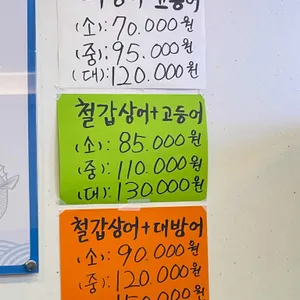 고등어
(소): 70.000원
(중): 95.000원
(대): 120.000원
철갑상어+고등어
(소): 85.000원
(중): 110.000원
(대): 130.000원
철갑상어+대방어
(소): 90.000원
(중): 120.000원
150.000원